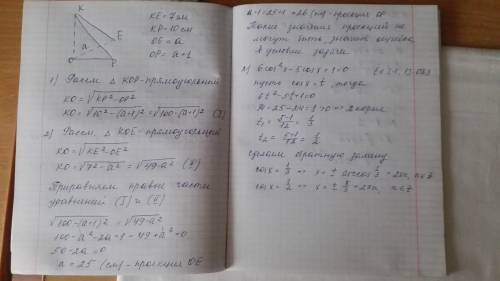 K
E
a
O
P
KE = 7 см
KP = 10 см
OE = a
OP = a+1
1) Рассм. △ KOP - прямоугольный
KO = √KP² - OP²
KO = √10² - (a+1)² = √100 - (a+1)² (I)
2) Рассм. △ KOE - прямоугольный
KO = √KE² - OE²
KO = √7² - a² = √49 - a² (II)
Приравняем правые части
уравнений (I) и (II)
√100 - (a+1)² = √49 - a²
100 - a² - 2a - 1 - 49 + a² = 0
50 - 2a = 0
a = 25 (см) - проекция OE
a + 1 = 25 + 1 = 26 (см) - проекция OP
Такие значения проекций не
могут быть, значит ошибка
в условии задачи
6cos²x - 5cosx + 1 = 0
пусть cosx = t, тогда
6t² - 5t + 1 = 0
D = 25 - 24 = 1 > 0 => 2 корня
t₁ = 5-1/12 = 1/3
t₂ = 5+1/12 = 1/2
сделаем обратную замену
cosx = 1/3 => x = ± arccos 1/3 + 2πn, n∈Z
cosx = 1/2 => x = ± π/3 + 2πn, n∈Z